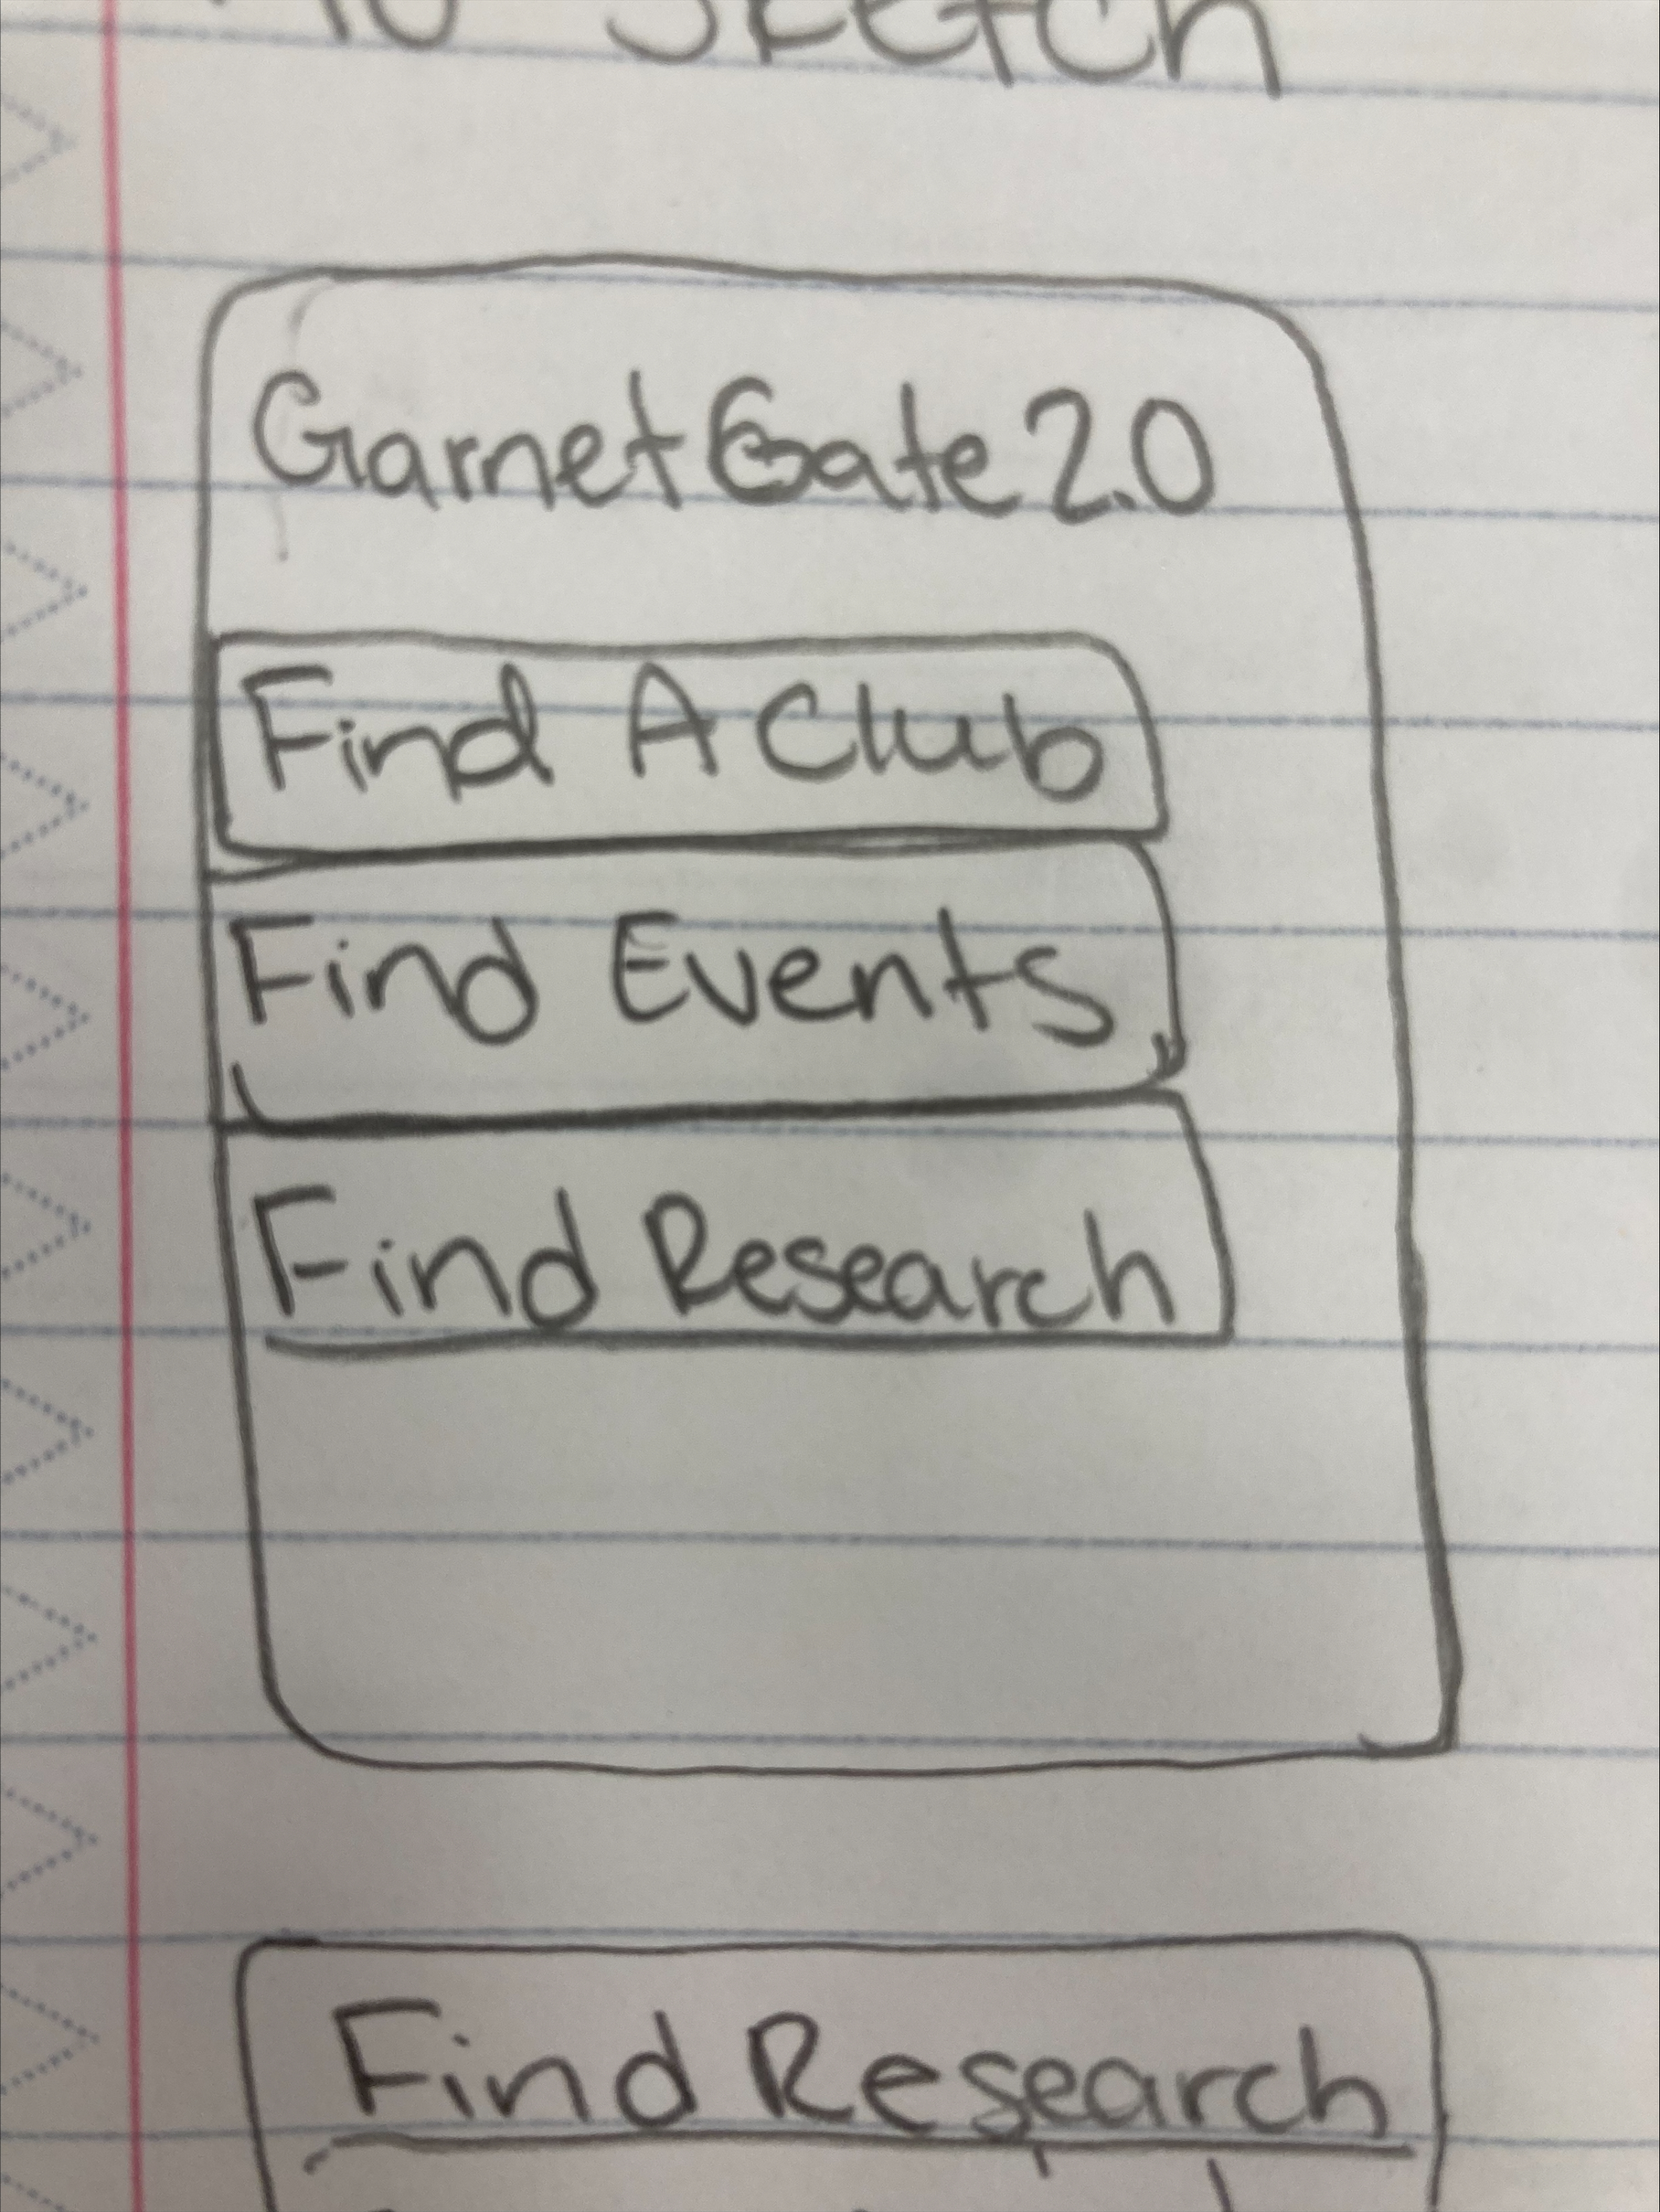 Sketch
GarnetGate 2.0
Find A Club
Find Events
Find Research
Find Research